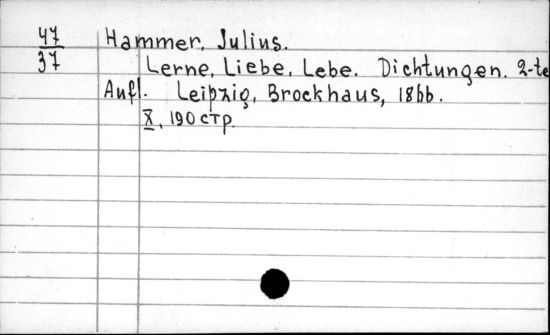 47 Hammer, Julius.
37 Lerne, Liebe, Lebe. Dichtungen. 2-te
Aufl. Leipzig, Brockhaus, 1866.
X, 190 стр.